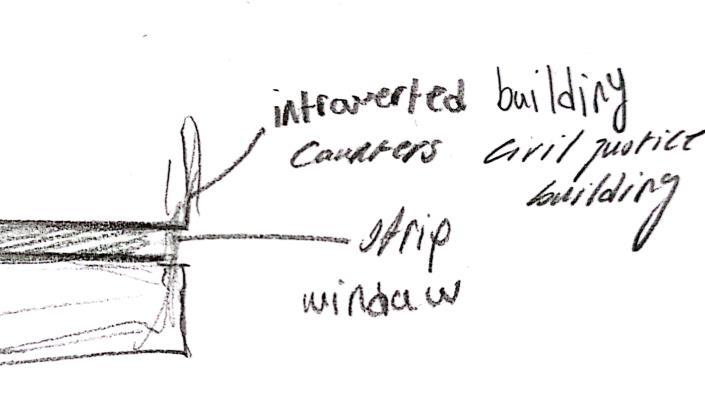 introverted building
counters civil justice
building
strip
window